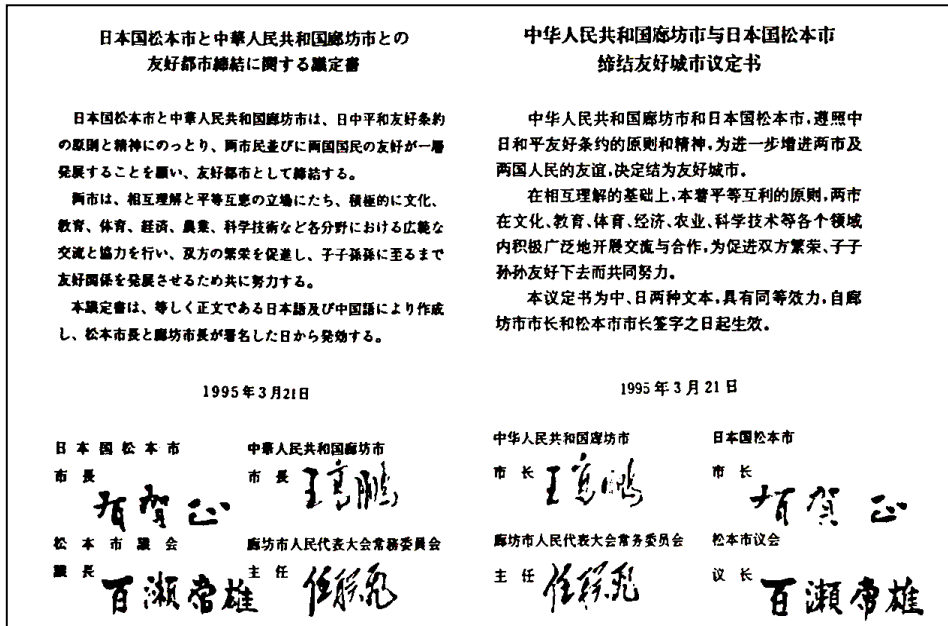 日本国松本市と中華人民共和国廊坊市との
友好都市締結に関する議定書
日本国松本市と中華人民共和国廊坊市は、日中平和友好条約
の原則と精神にのっとり、両市民並びに両国国民の友好が一層
発展することを願い、友好都市として締結する。
両市は、相互理解と平等互恵の立場にたち、積極的に文化、
教育、体育、経済、農業、科学技術など各分野における広範な
交流と協力を行い、双方の繁栄を促進し、子子孫孫に至るまで
友好関係を発展させるため共に努力する。
本議定書は、等しく正文である日本語及び中国語により作成
し、松本市長と廊坊市長が署名した日から発効する。
1995年3月21日
日本国松本市
市長
有賀正
松本市議会
議長
百瀬常雄
中華人民共和国廊坊市
市長
王富鵬
廊坊市人民代表大会常務委員会
主任
中华人民共和国廊坊市与日本国松本市
缔结友好城市议定书
中华人民共和国廊坊市和日本国松本市,遵照中
日和平友好条约的原则和精神,为进一步增进两市及
两国人民的友谊,决定结为友好城市。
在相互理解的基础上,本着平等互利的原则,两市
在文化、教育、体育、经济、农业、科学技术等各个领域
内积极广泛地开展交流与合作,为促进双方繁荣、子子
孙孙友好下去而共同努力。
本议定书为中、日两种文本,具有同等效力,自廊
坊市市长和松本市市长签字之日起生效。
1995年3月21日
中华人民共和国廊坊市
市长
廊坊市人民代表大会常务委员会
主任
日本国松本市
市长
有賀正
松本市议会
议长
百瀬常雄